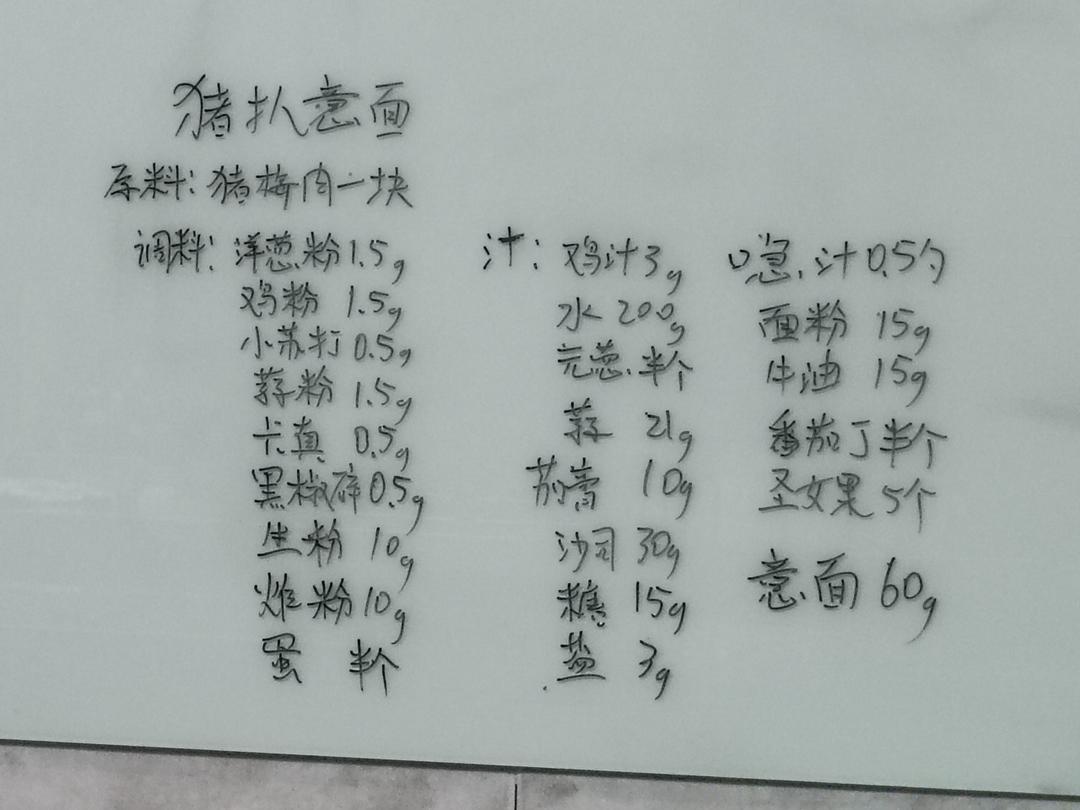 猪扒意面
原料:猪梅肉一块
调料:洋葱粉1.5g
鸡粉 1.5g
小苏打0.5g
蒜粉 1.5g
卡真 0.5g
黑椒碎0.5g
生粉 10g
炸粉10g
蛋 半个
汁:鸡汁3g
水 200g
元葱半个
蒜 21g
茄膏 10g
沙司 30g
糖 15g
盐 3g
喼汁0.5勺
面粉 15g
牛油 15g
番茄丁半个
圣女果5个
意面60g